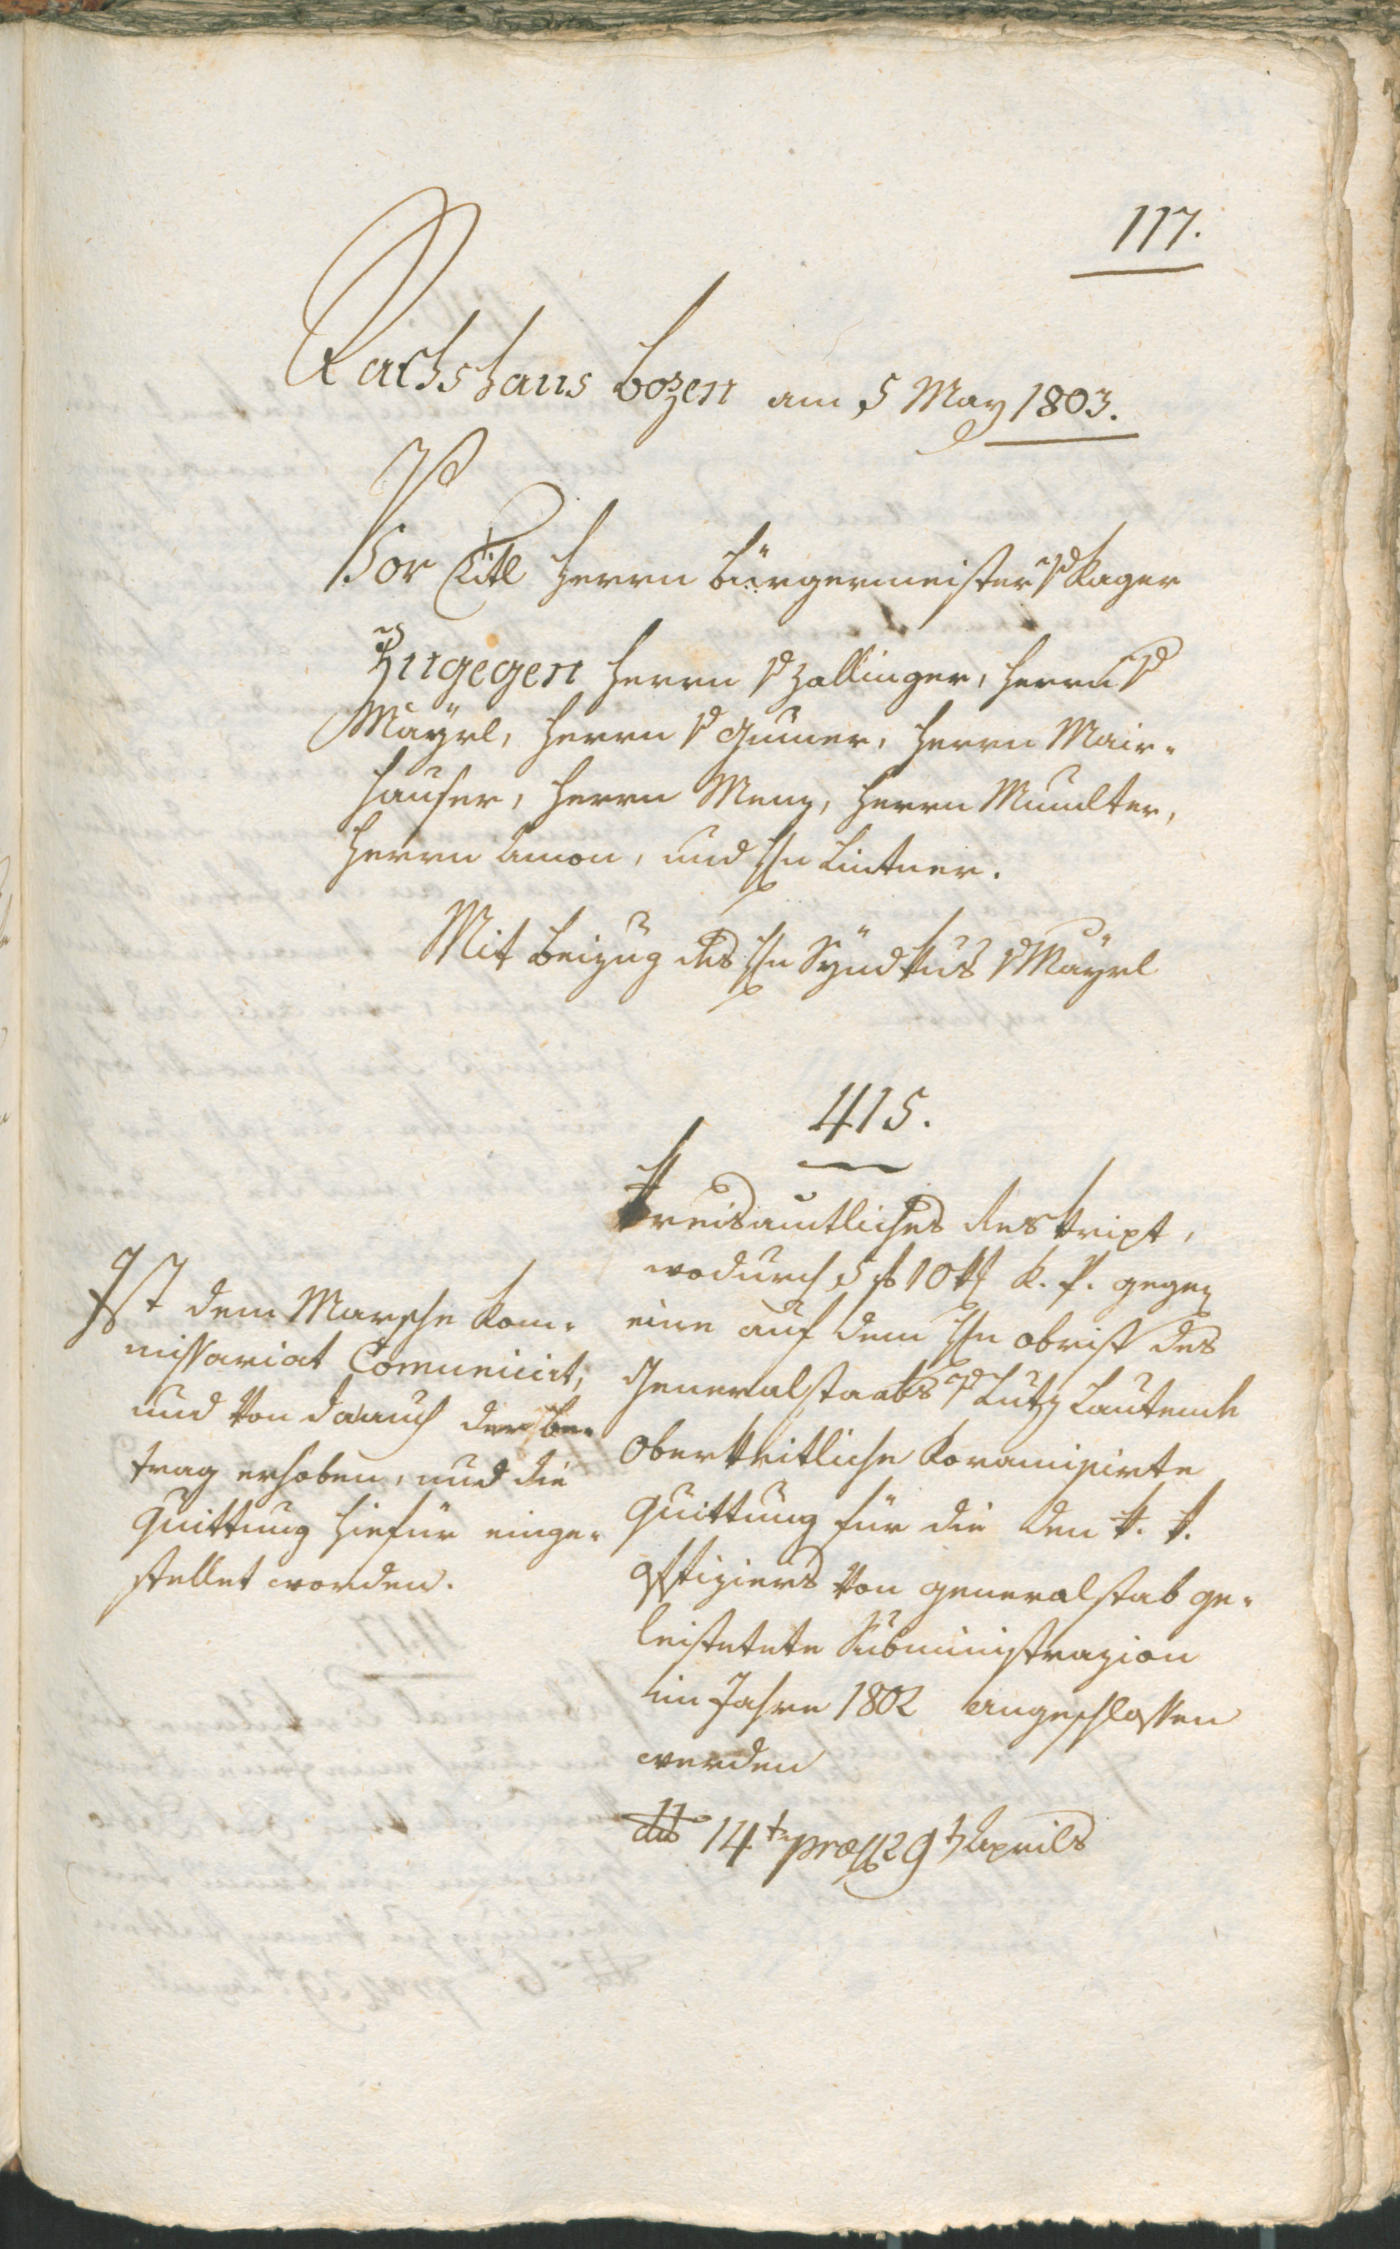 117.
Rathshaus Bozen am 5 May 1803.
Vor Titl Herrn Bürgermeister v Kager
Zugegen Herrn v Zallinger, Herrn v
Mayrl, Herrn v Gumer, Herrn Mair-
hauser, Herrn Menz, Herrn Mumelter,
Herrn Amon, und Hn Lintner.
Mit Beizug des Hn Syndikus v Mayrl
415.
Kreisamtliches Reskript,
wodurch 5 f 10 kr K. P. gegen
eine auf dem Hn Obrist des
Generalstaabs v Lutz lautende
Oberkeitliche Koramisirte
Quittung für die den k. k.
Offiziers von Generalstab ge-
leistetete Subministrazion
im Jahre 1802 angeschlossen
werden
dto 14t præs 29t Aprils
Ist dem Marsche Kom-
missariat Comunicirt,
und von da auch der Be-
trag erhoben, und die
Quittung hiefür einge-
stellet worden.